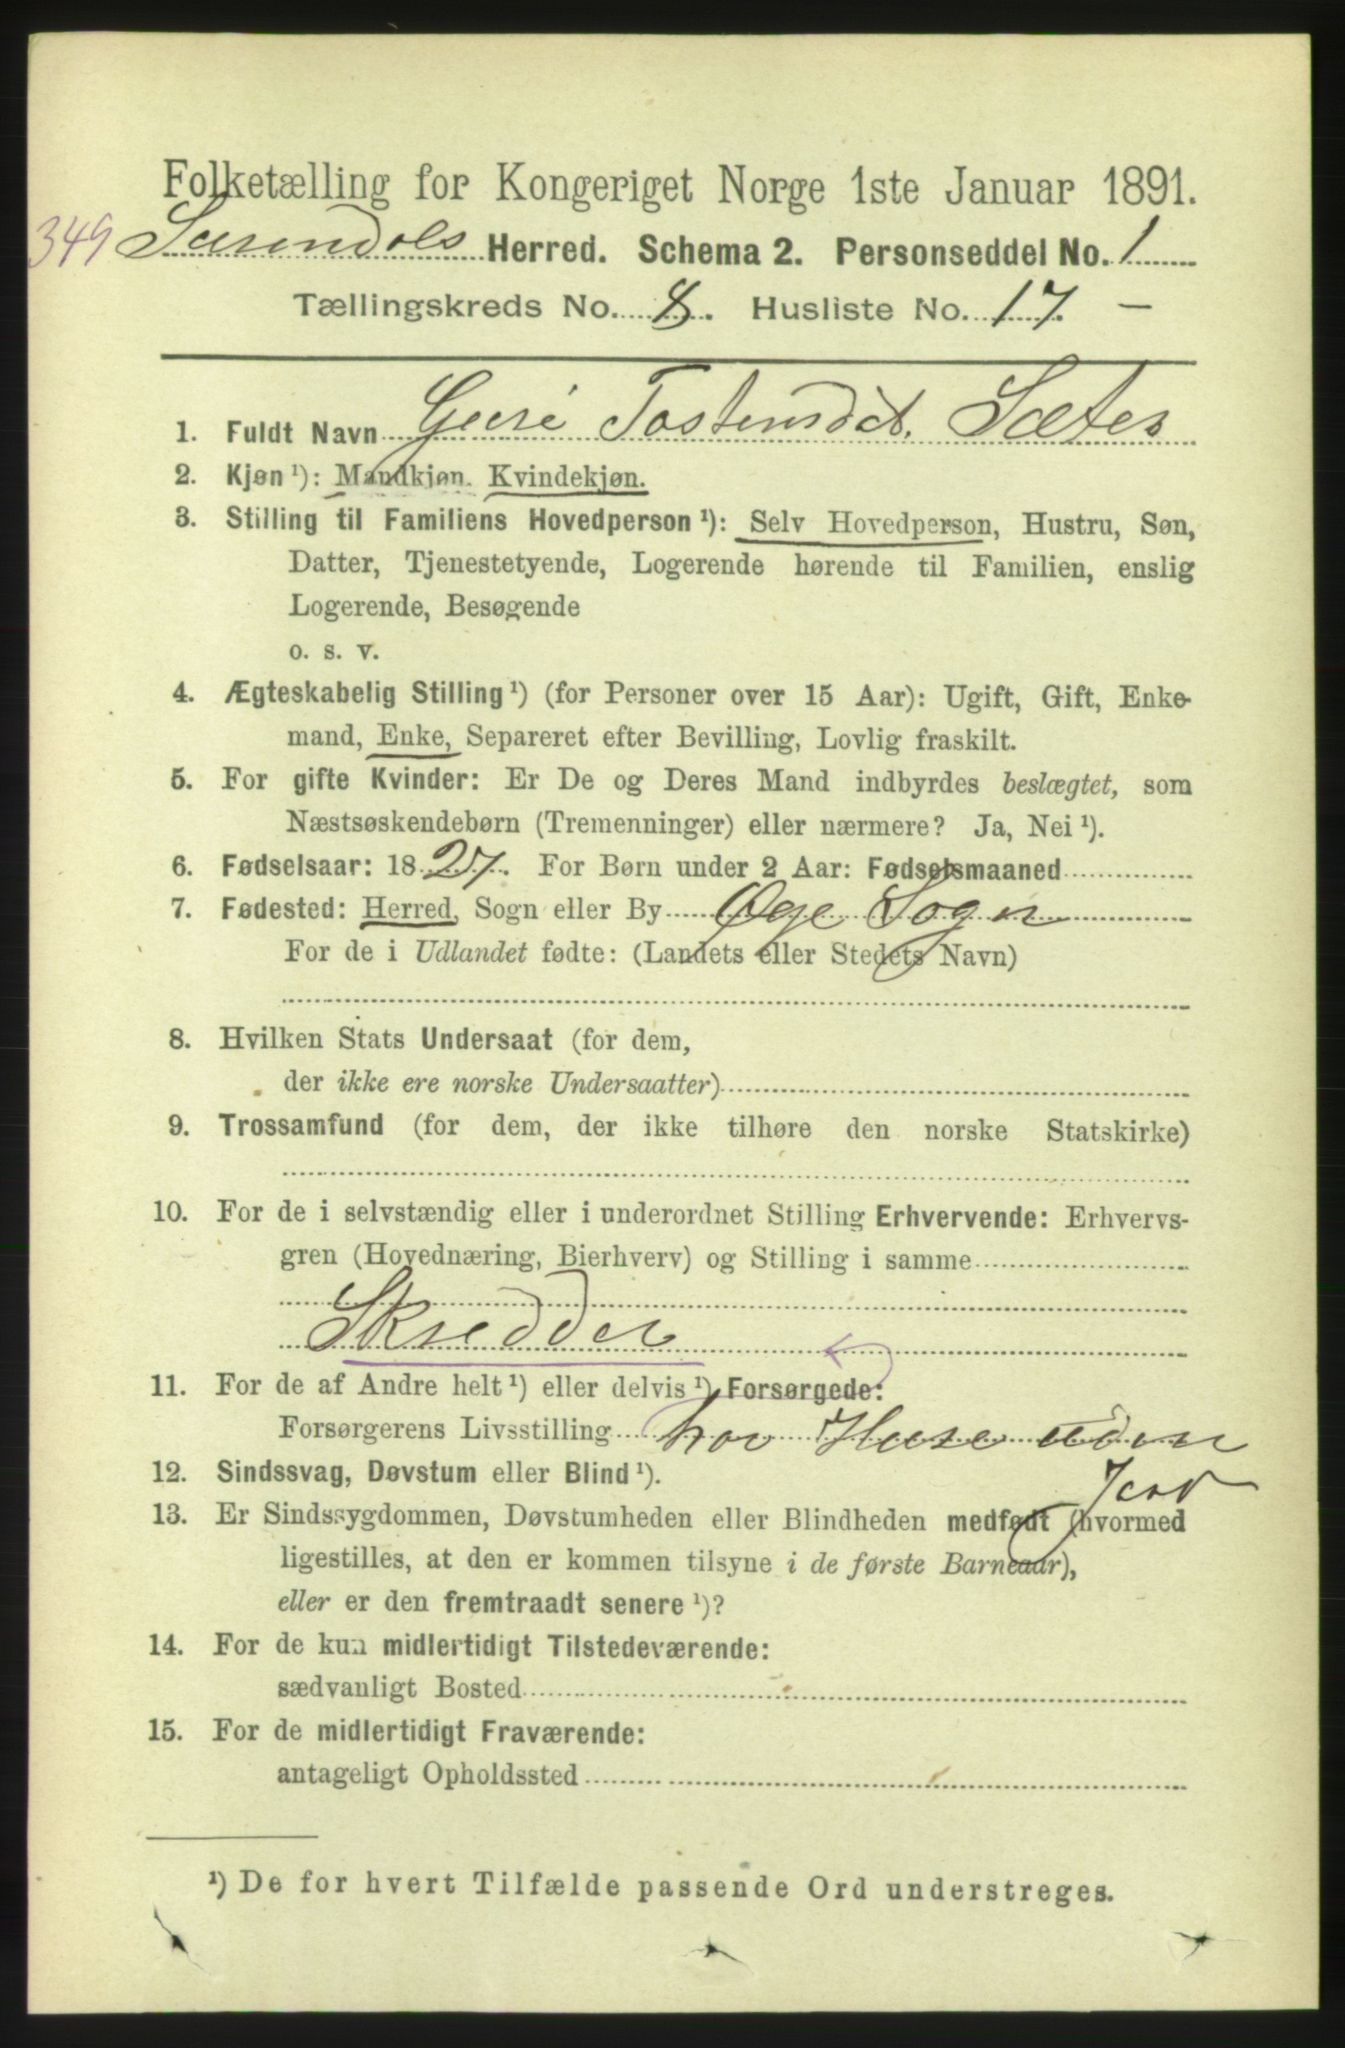 Folketælling for Kongeriget Norge 1ste Januar 1891.
349 Surendals Herred. Schema 2. Personseddel No. 1
Tællingskreds No. 8. Husliste No. 17. —
1. Fuldt Navn Guri Tostensdat. Sæter
2. Kjøn ¹): Mandkjøn. Kvindekjøn.
3. Stilling til Familiens Hovedperson ¹): Selv Hovedperson, Hustru, Søn,
Datter, Tjenestetyende, Logerende hørende til Familien, enslig
Logerende, Besøgende
o. s. v.
4. Ægteskabelig Stilling ¹) (for Personer over 15 Aar): Ugift, Gift, Enke-
mand, Enke, Separeret efter Bevilling, Lovlig fraskilt.
5. For gifte Kvinder: Er De og Deres Mand indbyrdes beslægtet, som
Næstsøskendebørn (Tremenninger) eller nærmere? Ja, Nei ¹).
6. Fødselsaar: 1827. For Børn under 2 Aar: Fødselsmaaned
7. Fødested: Herred, Sogn eller By Øye Sogn
For de i Udlandet fødte: (Landets eller Stedets Navn)
8. Hvilken Stats Undersaat (for dem,
der ikke ere norske Undersaatter)
9. Trossamfund (for dem, der ikke tilhøre den norske Statskirke)
10. For de i selvstændig eller i underordnet Stilling Erhvervende: Erhvervs-
gren (Hovednæring, Bierhverv) og Stilling i samme
Skredder
11. For de af Andre helt ¹) eller delvis ¹) Forsørgede:
Forsørgerens Livsstilling har Huse uden
Jord
12. Sindssvag, Døvstum eller Blind ¹).
13. Er Sindssygdommen, Døvstumheden eller Blindheden medfødt (hvormed
ligestilles, at den er kommen tilsyne i de første Barneaar),
eller er den fremtraadt senere ¹)?
14. For de kun midlertidigt Tilstedeværende:
sædvanligt Bosted
15. For de midlertidigt Fraværende:
antageligt Opholdssted
¹) De for hvert Tilfælde passende Ord understreges.